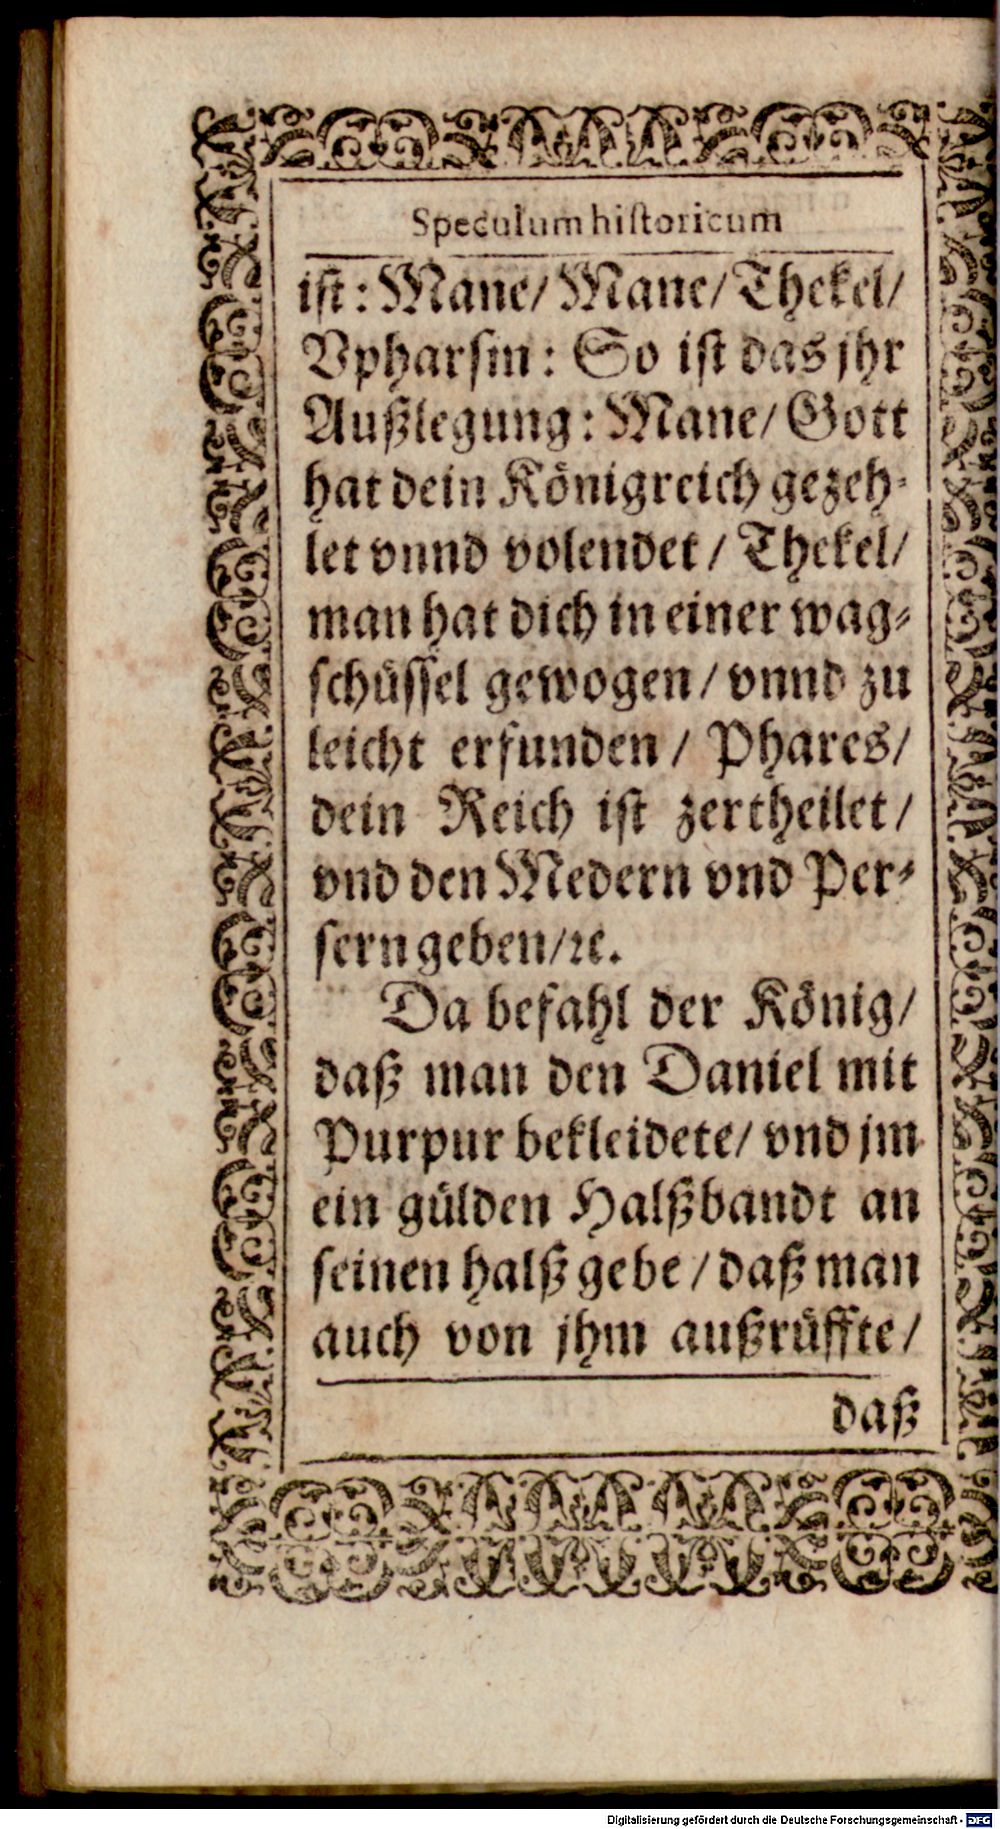 Speculum historicum
ist: Mane/ Mane/ Thekel/
Vpharsin: So ist das jhr
Außlegung: Mane/ Gott
hat dein Königreich gezeh-
let vnnd volendet/ Thekel/
man hat dich in einer wag-
schüssel gewogen/ vnnd zu
leicht erfunden/ Phares/
dein Reich ist zertheilet/
vnd den Medern vnd Per-
sern geben/ꝛc.
Da befahl der König/
daß man den Daniel mit
Purpur bekleidete/ vnd jm
ein gülden Halßbandt an
seinen halß gebe/ daß man
auch von jhm außrüffte/
daß
Digitalisierung gefördert durch die Deutsche Forschungsgemeinschaft - DFG